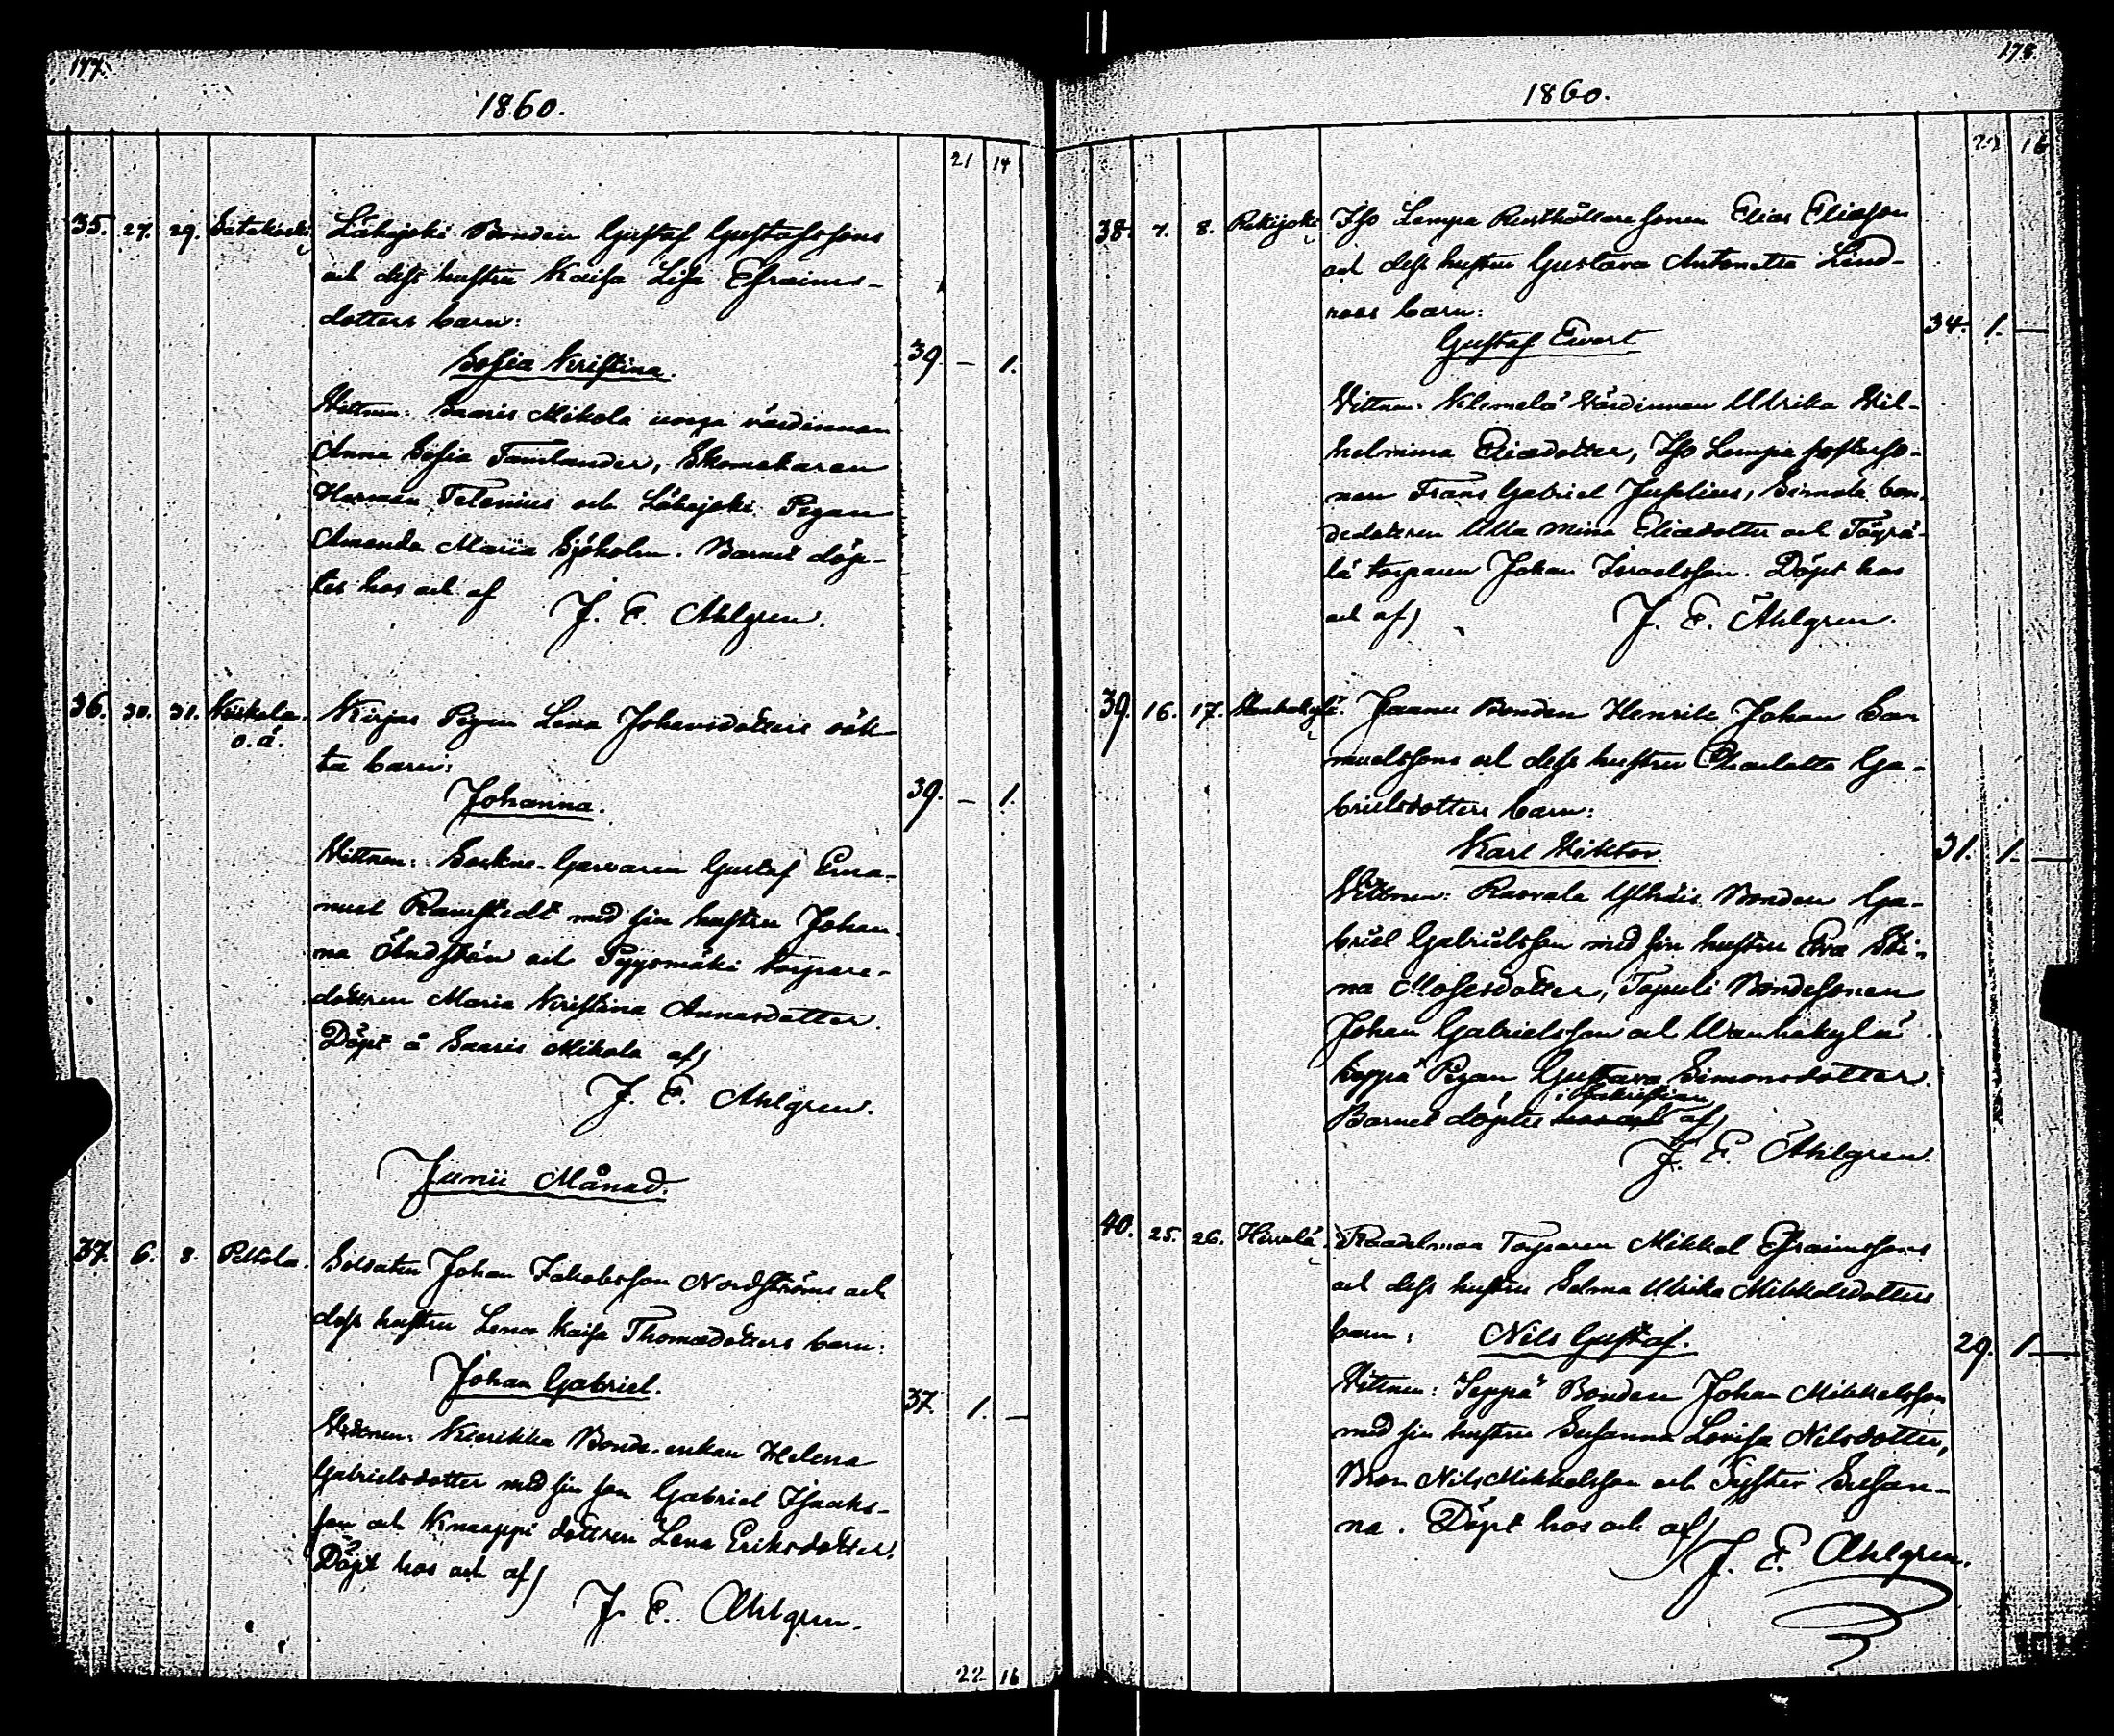 177.
1860.
21 14
35. 27. 29. Satakoski Lähijoki Bonden Gustaf Gustafssons
och dess hustru Kaisa Lisa Efraims-
dotters barn:
Sofia Kristina. 39. – 1.
Vittnen: Saaris Mikola unga värdinnan
Anna Sofia Tamlander, Skomakaren
Herman Telenius och Lähijoki Pigan
Amanda Maria Sjöholm. Barnet döp-
tes hos och af J. E. Ahlgren.
36. 30. 31. Koskola. Kirjas Pigan Lena Johansdotters oäk-
o.ä. ta barn:
Johanna. 39. – 1.
Vittnen: Sockne-Garvaren Gustaf Ema-
nuel Ramstedt med sin hustru Johan-
na och Pyysmäki torpare-
dottren Maria Kristina Annasdotter.
Döpt å Saaris Mikola af
J. E. Ahlgren.
Junii Månad.
37. 6. 8. Peltola. Soldaten Johan Jakobsson Nordströms och
dess hustru Lena Kaisa Thomædotters barn:
Johan Gabriel. 37. 1. –
Vittnen: Kierikka Bonde-enkan Helena
Gabrielsdotter med sin son Gabriel Isaaks-
son och Knaappi dottren Lena Eriksdotter.
Döpt hos och af
J. E. Ahlgren.
22 16
178.
1860.
22 16
38. 7. 8. Rekijoki Iso Lempa Rusthållaresonen Elias Eliasson
och dess hustru Gustava Antonetta Lind-
roos barn:
Gustaf Evert 34. 1. –
Vittnen: Nilemelä Värdinnan Ulrika Wil-
helmina Eliædotter, Iso Lempa fosterso-
nen Frans Gabriel Juselius, Simola bon-
dedottren Ulla Mina Eliædotter och
lä torparen Johan Israelsson. Döpt hos
och af J. E. Ahlgren.
39. 16. 17. Wanhakylä. Jaanu Bonden Henrik Johan Sa-
muelssons och dess hustru Charlotta Ga-
brielsdotters barn:
Karl Viktor 31. 1. –
Vittnen: Raovala Ylhäis Bonden Ga-
briel Gabrielsson med sin hustru Eva Sti-
na Mosesdotter, Tapuli Bondesonen
Johan Gabrielsson och Wanhakylä
Seppä Pigan Gustava Simonsdotter.
i Sakristian
Barnet döptes hos och af
J. E. Ahlgren.
40. 25. 26. Hirvelä. Raadelmaa Torparen Mikkel Efraimssons
och dess hustru Selma Ulrika Mikkelsdotters
barn: Nils Gustaf. 29. 1. –
Vittnen: Seppä Bonden Johan Mikkelsson
med sin hustru Susanna Lovisa Nilsdotter,
Bror Nils Mikkelsson och Syster Susan-
na. Döpt hos och af
J. E. Ahlgren.